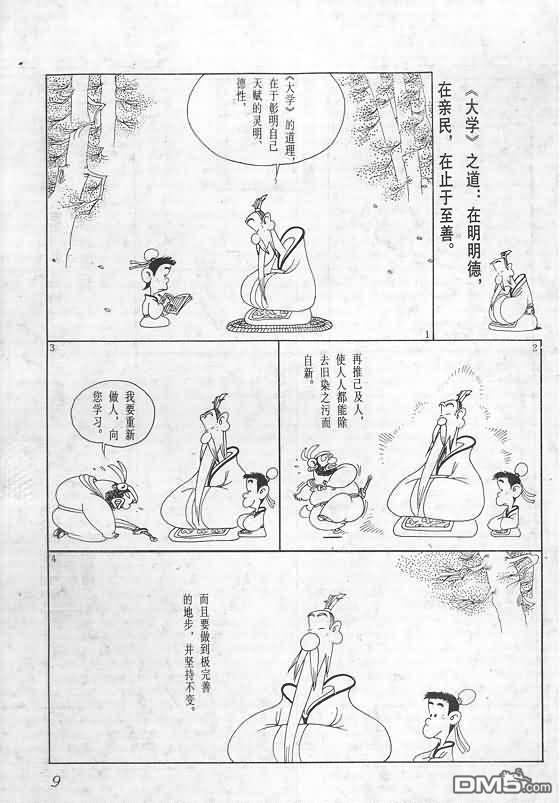 《大学》之道：在明明德，
在亲民，在止于至善。
1
《大学》的道理，
在于彰明自己
天赋的灵明、
德性，
2
再推己及人，
使人人都能除
去旧染之污而
自新。
3
我要重新
做人，向
您学习。
4
而且要做到极完善
的地步，并坚持不变。
9
DM5.com